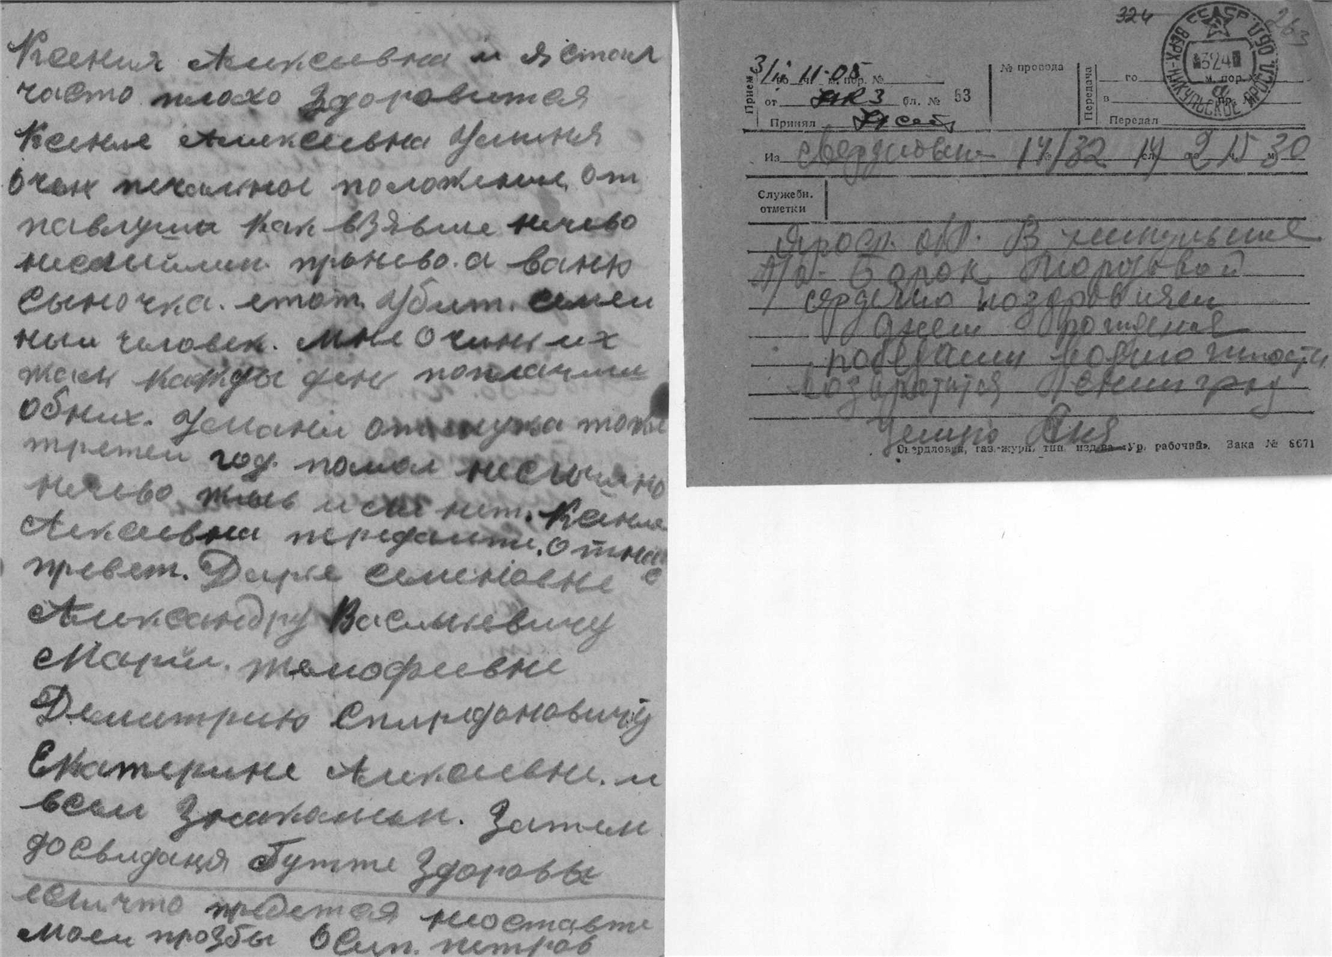 Ксения Аликсевна и я стал
часто плохо Здоровится
Ксеня Алексевна Уминя
очен печалное положения. От
павлуши как взявше нечево
неслышин пронево. а ваню
сыночка. етот. убит. семеи
ныи человек. мне очинь их
жаль кажды ден поплачиш
обних. Умани отмужа тоже
третеи год. помоя неслычно
нечево жыв или нет. Ксеня
Алексевна передаите. от нас
превет. Дарье семеновне
Александру Васильевичу
Марии. Темофиевне
Демитрию Спиредоновичу
Екатерине Алексевне. и
всем Знакомым. Затем
досвидання Бутте Здоровы
если что придетая неоставте
моеи прозбы Осип. петров
324
263
СССР
ВЕРХ-НИКУЛЬСКОЕ ЯРОСЛ. ОБЛ.
324
а
Прием
3/I 11-05
го
чм
пор. №
от
бл. № 53
Принял
№ провода
Передача
го
м. пор.
в
Передал
Из Свердловск 14/32 14 2 15 30
Служебн.
отметки
Яросл. обл. В никульское
П/О Борок Морозовой
сердечно поздравляем
днем рождения
победами
возвратится Ленинград
Целую Аня
Свердловск, газ.-журн. тип. изд-ва «Ур. рабочий». Зака № 6671